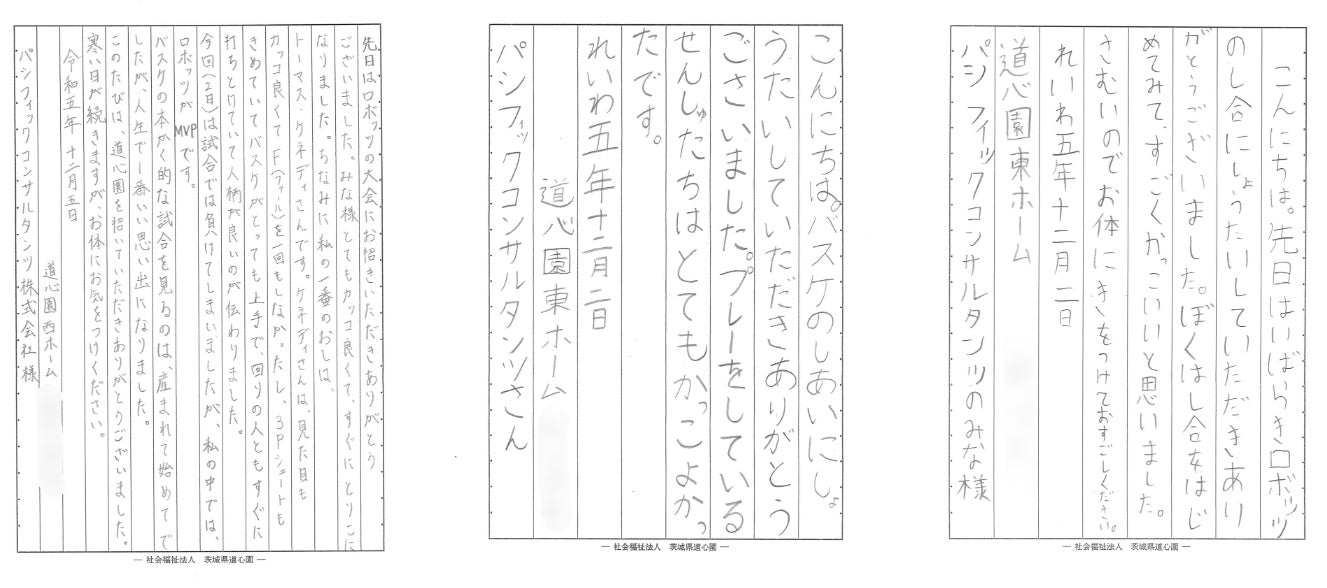 こんにちは。先日はいばらきロボッツ
のし合にしょうたいしていただきあり
がとうございました。ぼくはし合をはじ
めてみて、すごくかっこいいと思いました。
さむいのでお体にきをつけておすごしください。
れいわ五年十二月二日
道心園東ホーム
パシフィックコンサルタンツのみな様
― 社会福祉法人 茨城県道心園 ―
こんにちは。バスケのしあいにしょ
うたいしていただきありがとう
ごさいました。プレーをしている
せんしゅたちはとてもかっこよかっ
たです。
れいわ五年十二月二日
道心園東ホーム
パシフィックコンサルタンツさん
― 社会福祉法人 茨城県道心園 ―
先日はロボッツの大会にお招きいただきありがとう
ございました。みな様とてもカッコ良くて、すぐにとりこに
なりました。ちなみに私の一番のおしは、
トーマス・ケネディさんです。ケネディさんは、見た目も
カッコ良くてF(ファール)を一回もしなかったし、3Pシュートも
きめていてバスケがとっても上手で、回りの人ともすぐに
打ちとけていて人柄が良いのが伝わりました。
今回(2日)は試合では負けてしまいましたが、私の中では、
ロボッツがMVPです。
バスケの本かく的な試合を見るのは、産まれて始めてで
したが、人生で1番いい思い出になりました。
このたびは、道心園を招いていただきありがとうございました。
寒い日が続きますが、お体にお気をつけください。
令和五年 十二月五日
道心園西ホーム
パシフィックコンサルタンツ株式会社様
― 社会福祉法人 茨城県道心園 ―